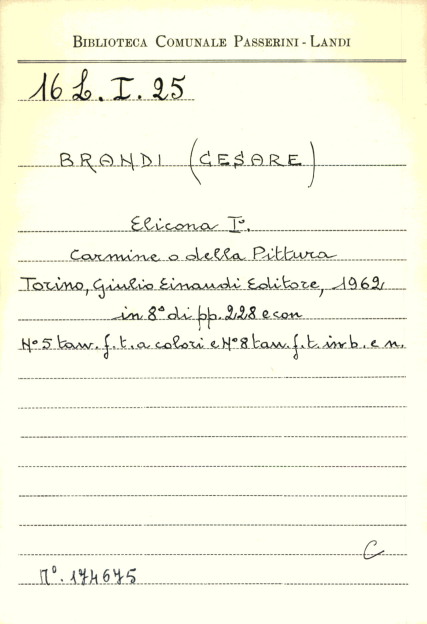 BIBLIOTECA COMUNALE PASSERINI - LANDI
16 L. I. 25
BRANDI (CESARE)
Elicona I°.
Carmine o della Pittura
Torino, Giulio Einaudi Editore, 1962
in 8° di pp. 228 e con
N° 5 tav. f. t. a colori e N° 8 tav. f. t. in b. e n.
C
N°. 174675